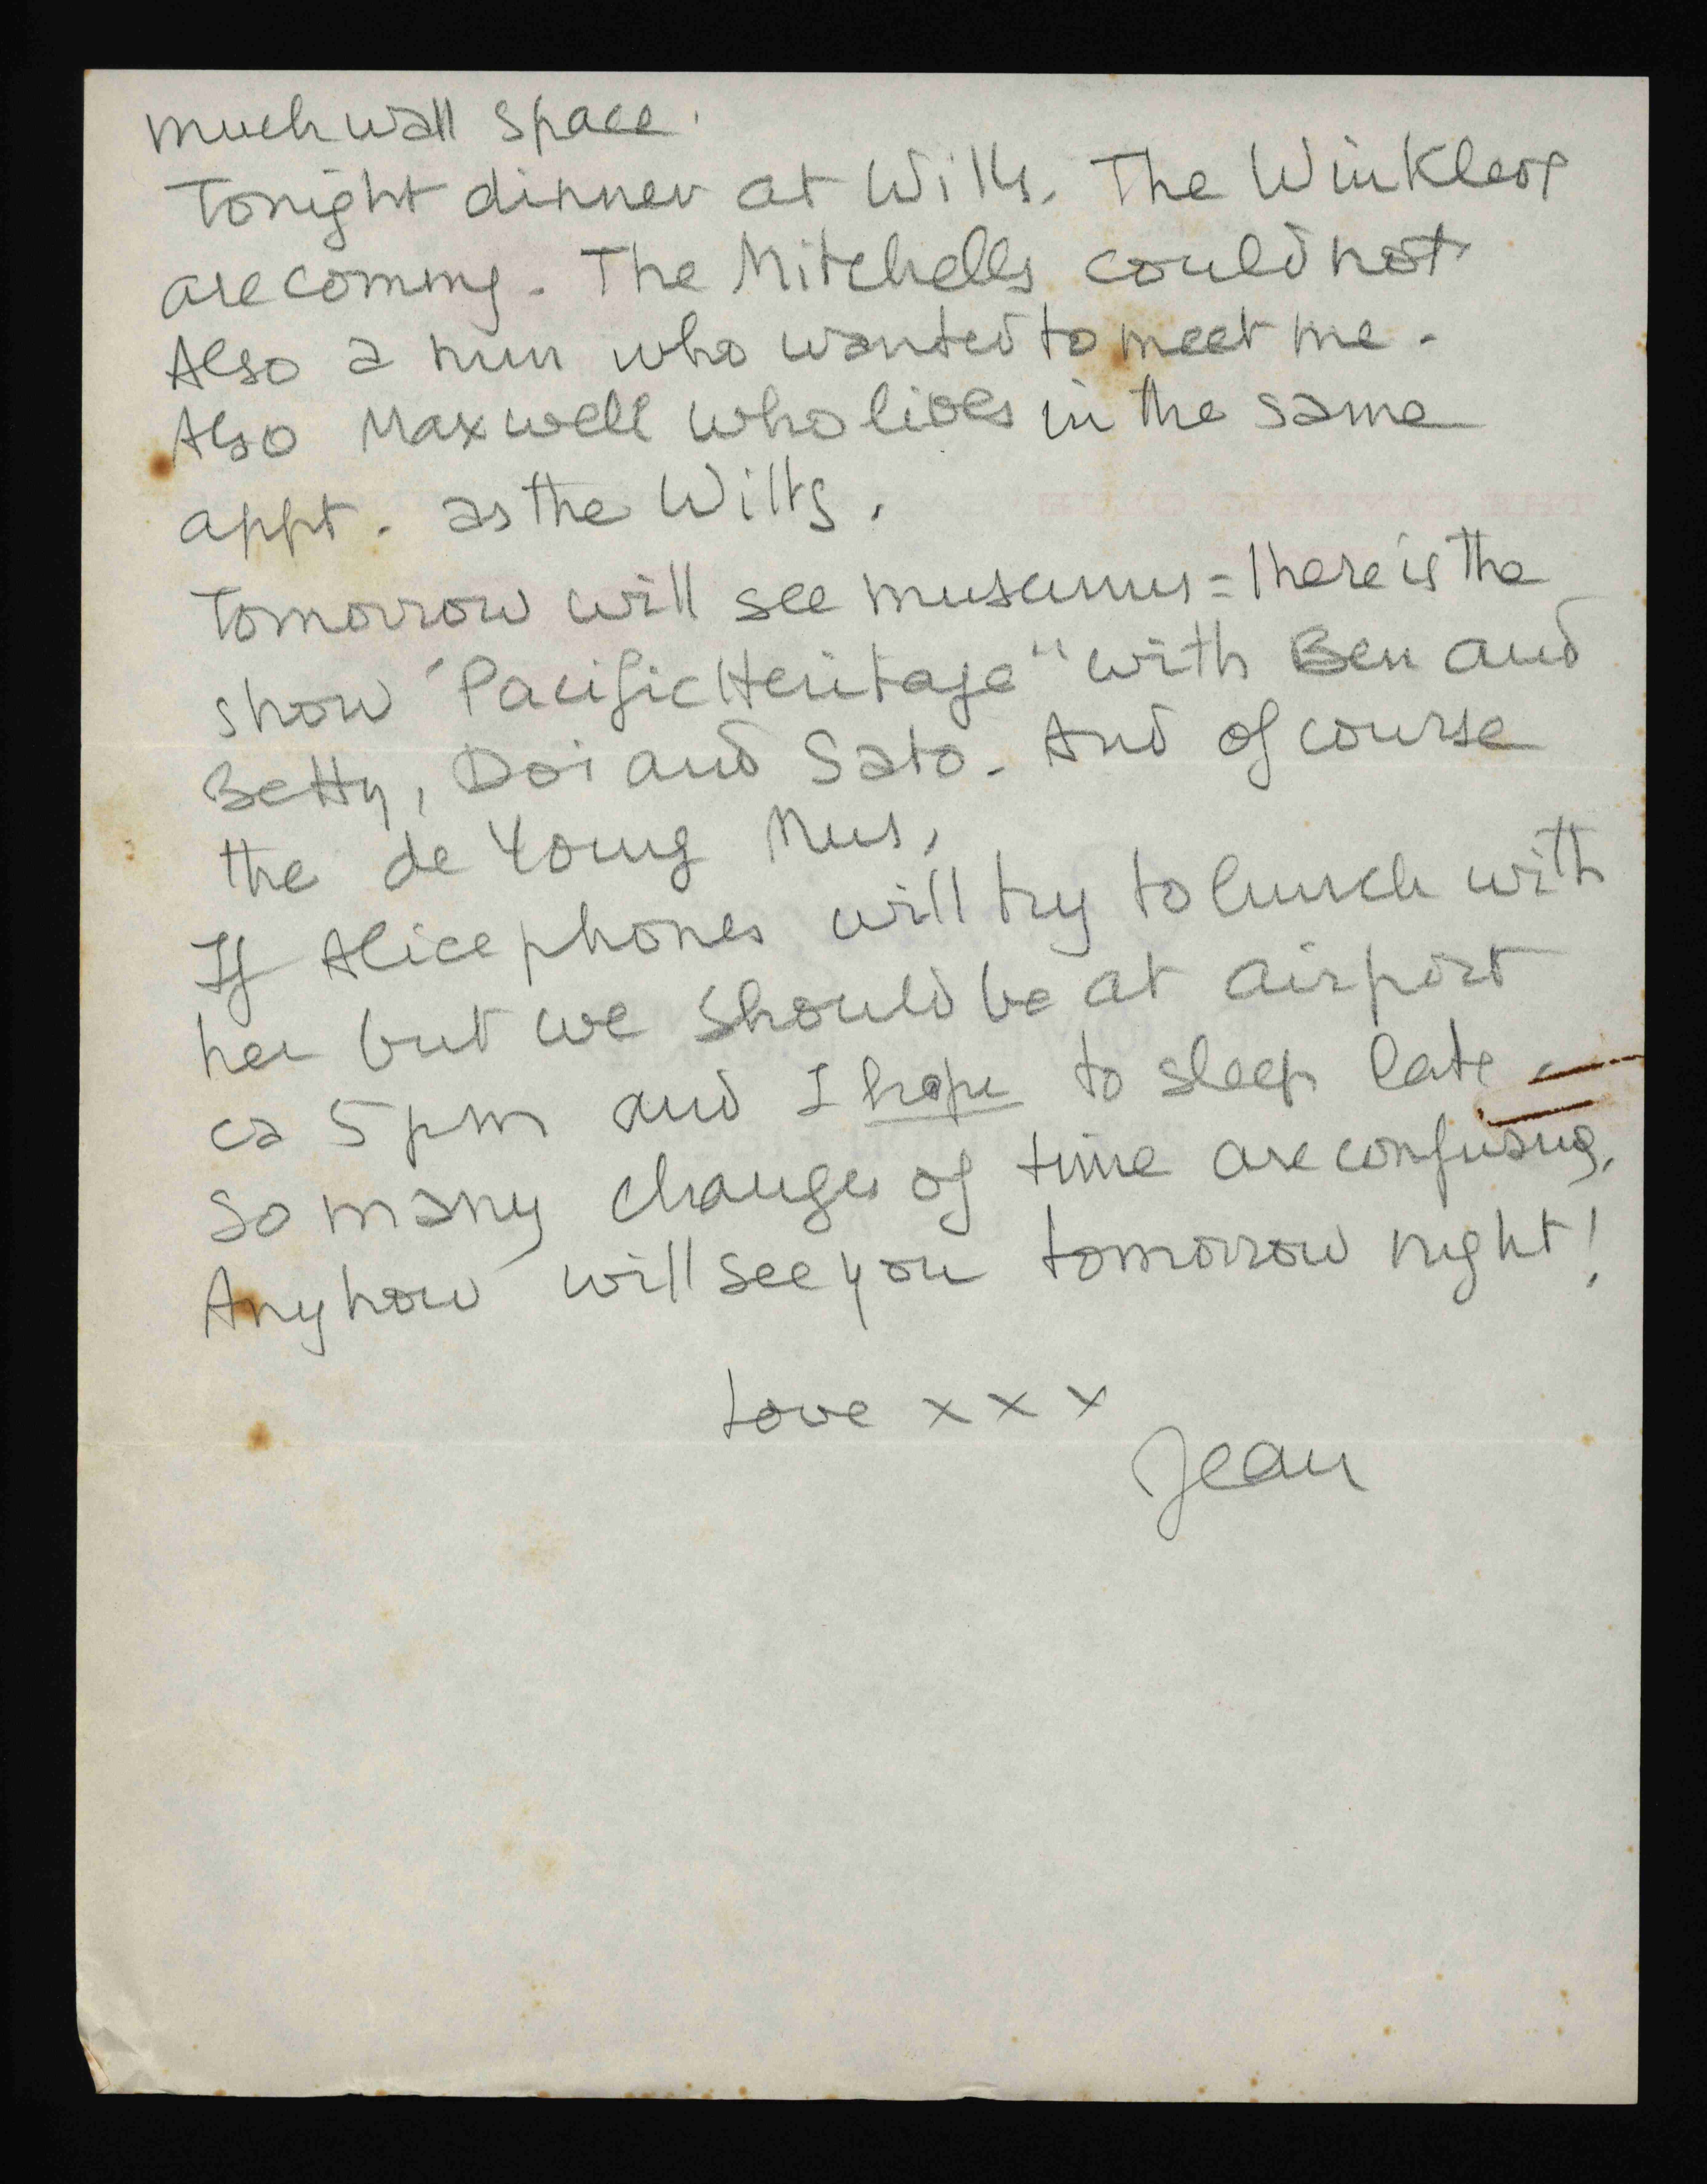 much wall space.
Tonight dinner at Wilts. The Winklers
are coming. The Mitchells could not
Also a nun who wanted to meet me.
Also Maxwell who lives in the same
appt. as the Wilts.
Tomorrow will see museums = There is the
show "Pacific Heritage" with Ben and
Betty, Doi and Sato. And of course
the de Young Mus,
If Alice phones will try to lunch with
her but we should be at airport
ca 5 pm and I hope to sleep late.
So many changes of time are confusing.
Anyhow will see you tomorrow night!
Love x x x
Jean